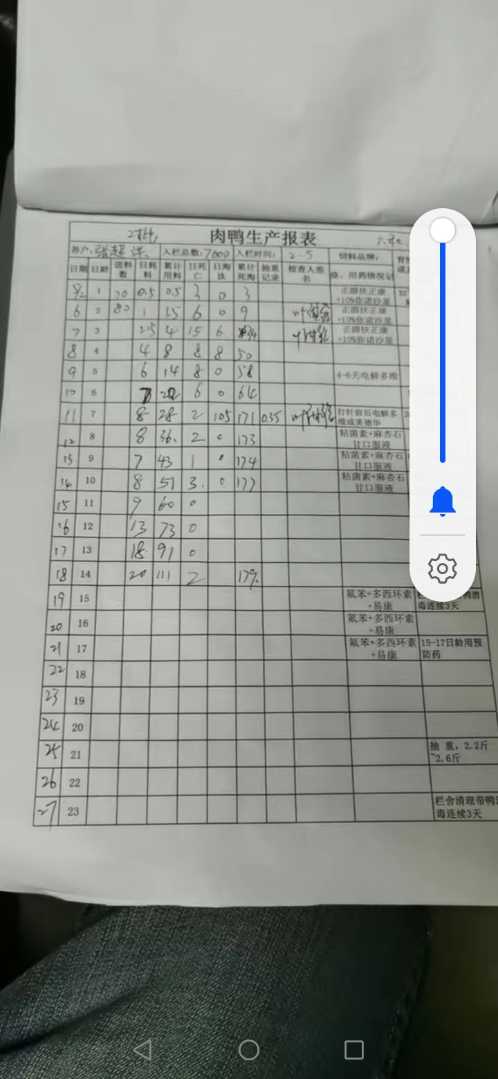 肉鸭生产报表
客户: 入栏总数: 7000 入栏时间: 2-5 饲料品牌:
日期 日龄 进料数 日耗料 累计用料 日死亡 日淘汰 累计死淘 抽重记录 检查人签名 疫、用药情况记
1 20 0.5 0.5 3 0 3 正源扶正康+10%依诺沙星
6 2 80 1 1.5 6 0 9 正源扶正康+10%依诺沙星
7 3 2.5 4 15 6 正源扶正康+10%依诺沙星
8 4 4 8 8 8 50
9 5 6 14 8 0 58 4-6天电解多维
10 6 7 6 0 64
11 7 8 28 2 105 171 0.35 打针前后电解多维或美德华
12 8 8 36 2 0 173 粘菌素+麻杏石甘口服液
13 9 7 43 1 0 174 粘菌素+麻杏石甘口服液
14 10 8 51 3 0 177 粘菌素+麻杏石甘口服液
15 11 9 60 0
16 12 13 73 0
17 13 18 91 0
18 14 20 111 2 179
19 15 氟苯+多西环素+易康 毒连续3天
20 16 氟苯+多西环素+易康
21 17 氟苯+多西环素+易康 15-17日龄用预防药
22 18
23 19
24 20
25 21 抽重,2.2斤~2.6斤
26 22
27 23 栏舍清理带鸭消毒连续3天